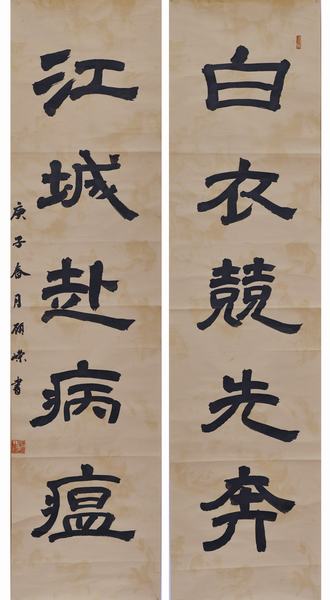 白衣競先奔
江城赴病瘟
庚子春月顧嶸書